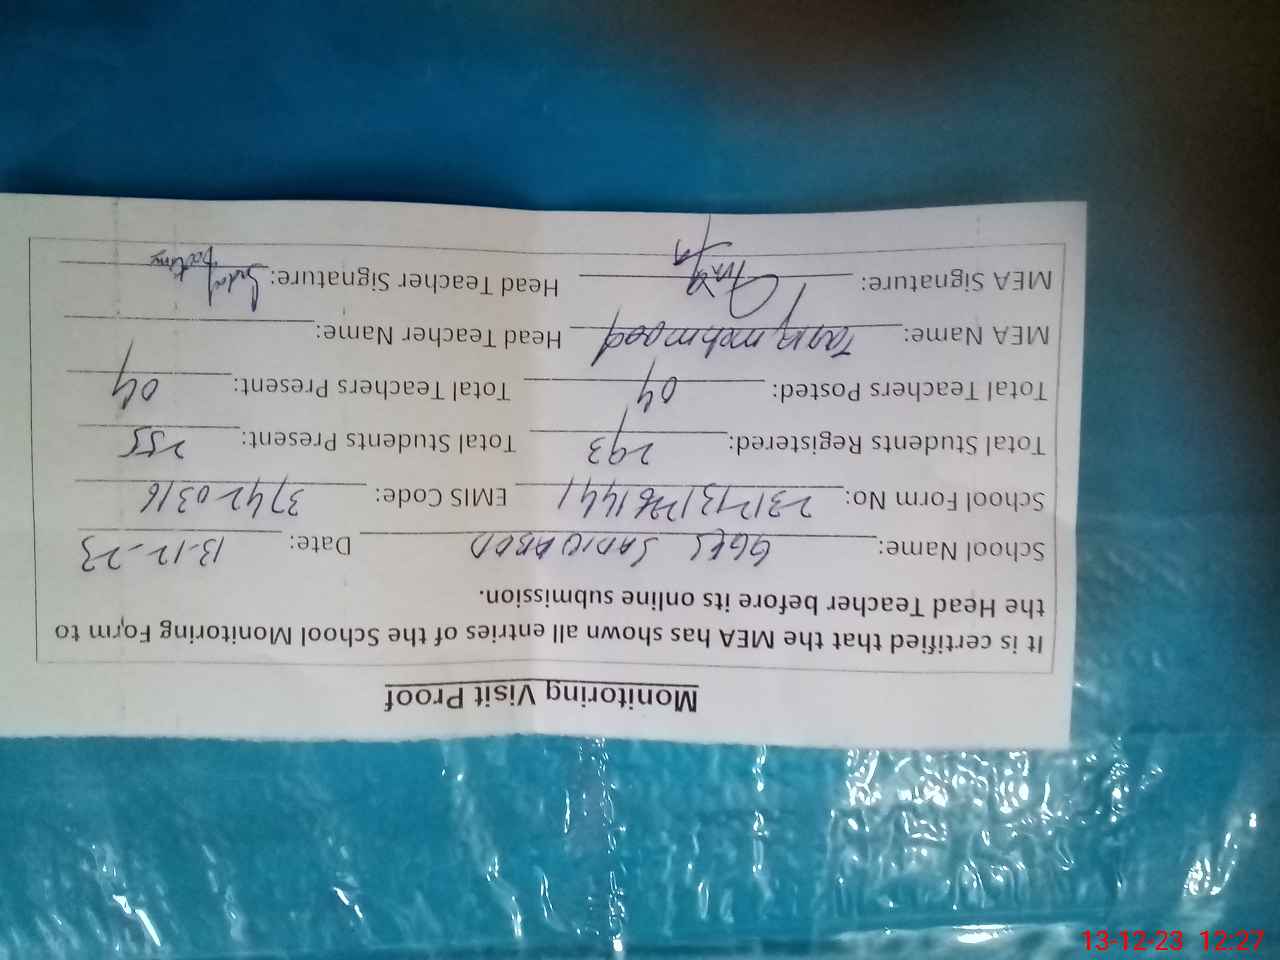 Monitoring Visit Proof
It is certified that the MEA has shown all entries of the School Monitoring Form to
the Head Teacher before its online submission.
School Name: GGES SADIQABAD Date: 13-12-23
School Form No: EMIS Code: 37420316
Total Students Registered: 293 Total Students Present: 255
Total Teachers Posted: 04 Total Teachers Present: 04
MEA Name: Tariq mehmood Head Teacher Name:
MEA Signature: Head Teacher Signature:
13-12-23 12:27